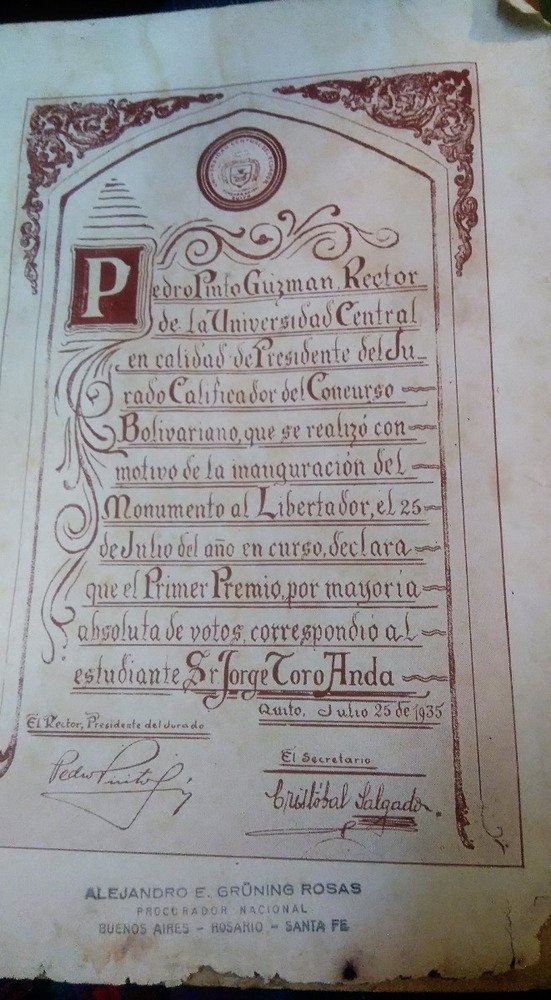 Pedro Pinto Guzman, Rector
de la Universidad Central
en calidad de Presidente del Ju-
rado Calificador del Concurso
Bolivariano, que se realizó con
motivo de la inauguración del
Monumento al Libertador, el 25
de Julio del año en curso, declara
que el Primer Premio, por mayoria
absoluta de votos, correspondió al
estudiante Sr Jorge Toro Anda
Quito, Julio 25 de 1935
El Rector, Presidente del Jurado
Pedro Pinto G
El Secretario
Cristóbal Salgado.
ALEJANDRO E. GRÜNING ROSAS
PROCURADOR NACIONAL
BUENOS AIRES - ROSARIO - SANTA FE